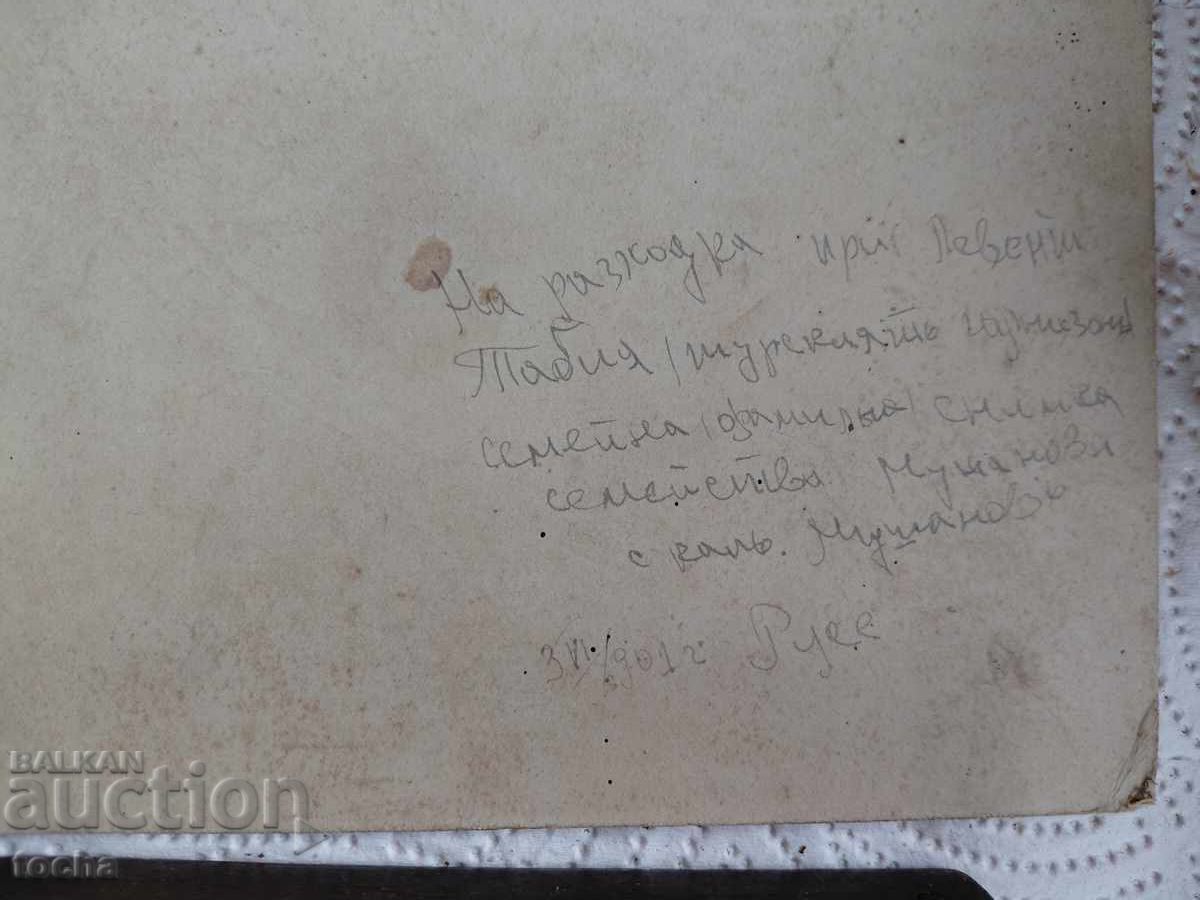 На разходка при Левент
Табия /турскиятъ гарнизон/
семейна /фамилна/ снимка
семейства Мушанови
с кап. Мушановъ
3 VI /901 г Русе
BALKAN
auction
tocha